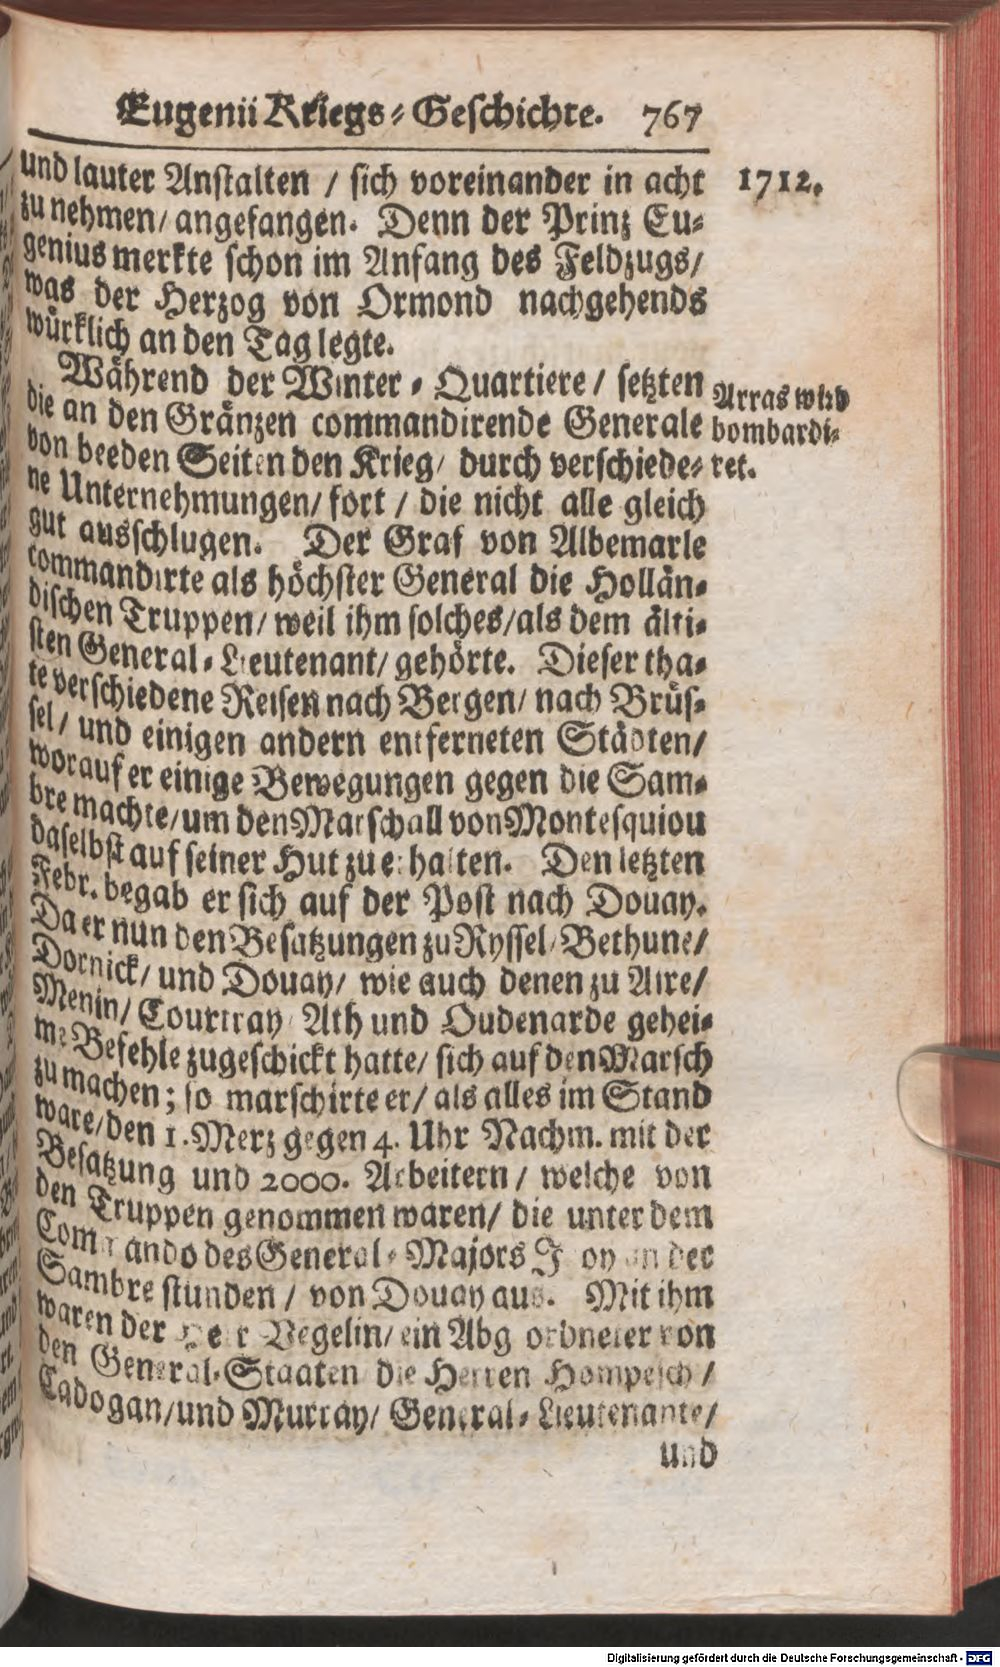 Eugenii Kriegs-Geschichte. 767
und lauter Anstalten / sich voreinander in acht
1712.
zu nehmen/ angefangen. Denn der Prinz Eu-
genius merkte schon im Anfang des Feldzugs/
was der Herzog von Ormond nachgehends
würklich an den Tag legte.
Während der Winter-Quartiere / setzten
Arras wird
die an den Gränzen commandirende Generale
bombardi-
von beeden Seiten den Krieg/ durch verschiede-
ret.
ne Unternehmungen/ fort / die nicht alle gleich
gut ausschlugen. Der Graf von Albemarle
commandirte als höchster General die Hollän-
dischen Truppen/ weil ihm solches/ als dem älti-
sten General-Lieutenant/ gehörte. Dieser tha-
te verschiedene Reisen nach Bergen/ nach Brüs-
sel/ und einigen andern entferneten Städten/
worauf er einige Bewegungen gegen die Sam-
bre machte/ um den Marschall von Montesquiou
daselbst auf seiner Hut zu erhalten. Den letzten
Febr. begab er sich auf der Post nach Douay.
Da er nun den Besatzungen zu Ryssel/ Bethune/
Dornick/ und Douay/ wie auch denen zu Aire/
Menin/ Courtray/ Ath und Oudenarde gehei-
me Befehle zugeschickt hatte/ sich auf den Marsch
zu machen; so marschirte er/ als alles im Stand
ware/ den 1. Merz gegen 4. Uhr Nachm. mit der
Besatzung und 2000. Arbeitern / welche von
den Truppen genommen waren/ die unter dem
Commando des General-Majors an der
Sambre stunden / von Douay aus. Mit ihm
waren der Vegelin/ ein Abgeordneter von
den General-Staaten die Herren Hompesch /
Cadogan/ und Murray/ General-Lieutenante/
und
Digitalisierung gefördert durch die Deutsche Forschungsgemeinschaft - DFG